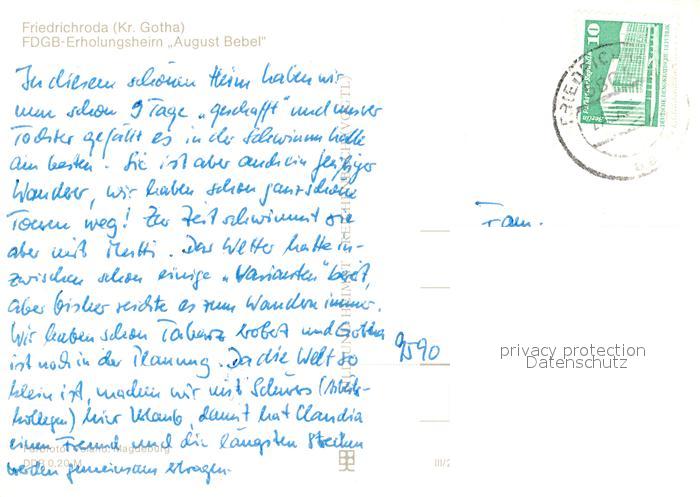 Friedrichroda (Kr. Gotha)
FDGB-Erholungsheim „August Bebel"
In diesem schönen Heim haben wir
nun schon 9 Tage „geschafft" und unser
Tochter gefällt es in der Schwimmhalle
am besten. Sie ist aber auch ein fleißiger
Wanderer, wir haben schon ganz schöne
Touren weg! Zur Zeit schwimmt sie
aber mit Mutti. Das Wetter hatte in-
zwischen schon einige „Varianten" bereit,
aber bisher reichte es zum Wandern immer.
Wir haben schon Tabarz erobert und Gotha
ist noch in der Planung. Da die Welt so
klein ist, machen wir mit (Arbeits-
kollegen) hier Urlaub, damit hat Claudia
einen Freund und die längsten Strecken
werden gemeinsam ertragen.
Magdeburg
DDR 0,20 M
III/2
Fam.
9590
10
DEUTSCHE DEMOKRATISCHE REPUBLIK
privacy protection
Datenschutz